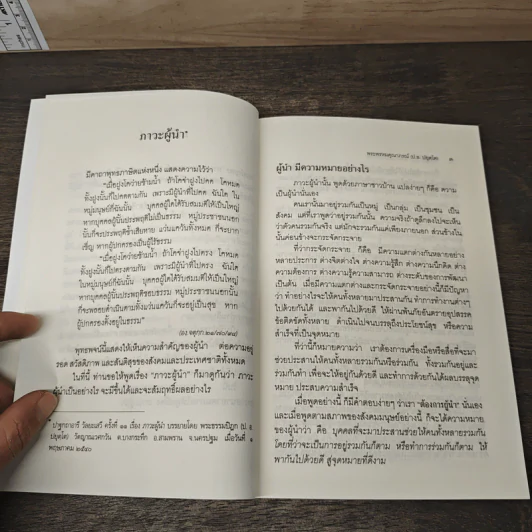 ภาวะผู้นำ*
มีคาถาพุทธภาษิตแห่งหนึ่ง แสดงความไว้ว่า
"เมื่อฝูงโคว่ายข้ามน้ำ ถ้าโคจ่าฝูงไปคด โคหมด
ทั้งฝูงนั้นก็ไปคดตามกัน เพราะมีผู้นำที่ไปคด ฉันใด ใน
หมู่มนุษย์ก็ฉันนั้น บุคคลผู้ใดได้รับสมมติให้เป็นใหญ่
หากบุคคลผู้นั้นประพฤติไม่เป็นธรรม หมู่ประชาชนนอก
นั้นก็จะประพฤติซ้ำเสียหาย แว่นแคว้นทั้งหมด ก็จะยาก
เข็ญ หากผู้ปกครองเป็นผู้ไร้ธรรม
"เมื่อฝูงโคว่ายข้ามน้ำ ถ้าโคจ่าฝูงไปตรง โคหมด
ทั้งฝูงนั้นก็ไปตรงตามกัน เพราะมีผู้นำที่ไปตรง ฉันใด
ในหมู่มนุษย์ก็ฉันนั้น บุคคลผู้ใดได้รับสมมติให้เป็นใหญ่
หากบุคคลผู้นั้นประพฤติชอบธรรม หมู่ประชาชนนอกนั้น
ก็จะพลอยดำเนินตามทั้งแว่นแคว้นก็จะอยู่เป็นสุข หาก
ผู้ปกครองตั้งอยู่ในธรรม"
(อง.จตุกก.๒๑/๗๐/๙๘)
พุทธพจน์นี้แสดงให้เห็นความสำคัญของผู้นำ ต่อความอยู่
รอด สวัสดิภาพ และสันติสุขของสังคมและประเทศชาติทั้งหมด
ในที่นี้ ท่านขอให้พูดเรื่อง "ภาวะผู้นำ" ก็มาดูกันว่า ภาวะ
ผู้นำเป็นอย่างไร จะมีขึ้นได้และจะสัมฤทธิ์ผลอย่างไร
ปาฐกถา ครั้งที่ ๑๑ เรื่อง ภาวะผู้นำ บรรยายโดย พระธรรมปิฎก (ป. อ.
ปยุตฺโต) วัดญาณเวศกวัน ต.บางกระทึก อ.สามพราน จ.นครปฐม เมื่อวันที่ ๑
พฤษภาคม ๒๕๔๐
พระพรหมคุณาภรณ์ (ป.อ. ปยุตฺโต) ๓
ผู้นำ มีความหมายอย่างไร
ภาวะผู้นำนั้น พูดด้วยภาษาชาวบ้าน แปลง่ายๆ ก็คือ ความ
เป็นผู้นำนั่นเอง
คนเรานั้นมาอยู่รวมกันเป็นหมู่ เป็นกลุ่ม เป็นชุมชน เป็น
สังคม แต่ที่เราพูดว่าอยู่รวมกันนั้น ความจริงถ้าดูลึกลงไปจะเห็น
ว่าตัวคนรวมกันจริง แต่มักจะรวมกันแค่เพียงภายนอก ส่วนข้างใน
นั้นค่อนข้างจะกระจัดกระจาย
ที่ว่ากระจัดกระจาย ก็คือ มีความแตกต่างกันหลายอย่าง
หลายประการ ต่างจิตต่างใจ ต่างความรู้สึก ต่างความนึกคิด ต่าง
ความต้องการ ต่างความรู้ความสามารถ ต่างระดับของการพัฒนา
เป็นต้น เมื่อมีความแตกต่างและกระจัดกระจายอย่างนี้ก็มีปัญหา
ว่า ทำอย่างไรจะให้คนทั้งหลายมาประสานกัน ทำการทำงานต่างๆ
ไปด้วยกันได้ และพากันไปได้ดี ให้ผ่านพ้นภัยอันตรายอุปสรรค
ข้อติดขัดทั้งหลาย ดำเนินไปจนบรรลุถึงประโยชน์สุข หรือความ
สำเร็จที่เป็นจุดหมาย
ที่ว่านี้ก็หมายความว่า เราต้องการเครื่องมือหรือสื่อที่จะมา
ช่วยประสานให้คนทั้งหลายรวมกันหรือร่วมกัน ทั้งรวมกันอยู่และ
ร่วมกันทำ เพื่อจะให้อยู่กันด้วยดี และทำการด้วยกันได้ผลบรรลุจุด
หมาย ประสบความสำเร็จ
เมื่อพูดอย่างนี้ ก็มีคำตอบง่ายๆ ว่าเรา "ต้องการผู้นำ" นั่นเอง
และเมื่อพูดตามสภาพของสังคมมนุษย์อย่างนี้ ก็จะได้ความหมาย
ของผู้นำว่า คือ บุคคลที่จะมาประสานช่วยให้คนทั้งหลายรวมกัน
โดยที่ว่าจะเป็นการอยู่รวมกันก็ตาม หรือทำการร่วมกันก็ตาม ให้
พากันไปด้วยดี สู่จุดหมายที่ดีงาม